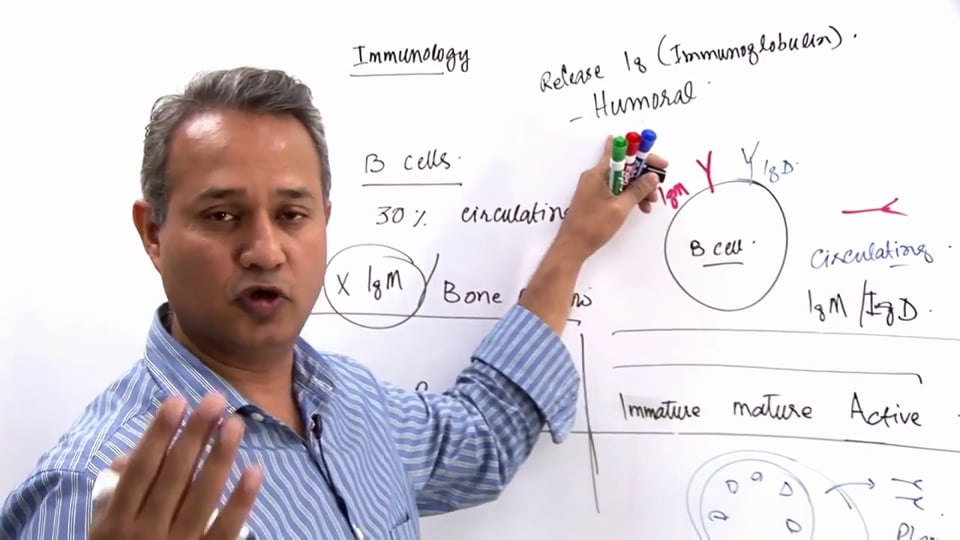 Immunology
Release Ig (Immunoglobulin).
- Humoral
B cells
30% circulating
X IgM
Bone
IgM
IgD
B cell
Circulating
IgM / IgD.
Immature mature Active